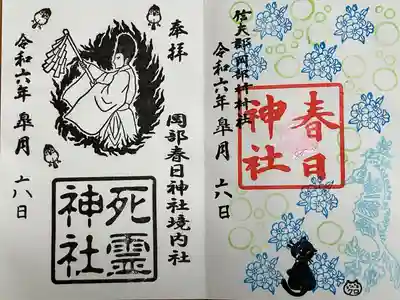 信夫郡岡部村村社
春日
神社
令和六年 皐月 日
奉拝
岡部春日神社境内社
死霊
神社
令和六年 皐月 日